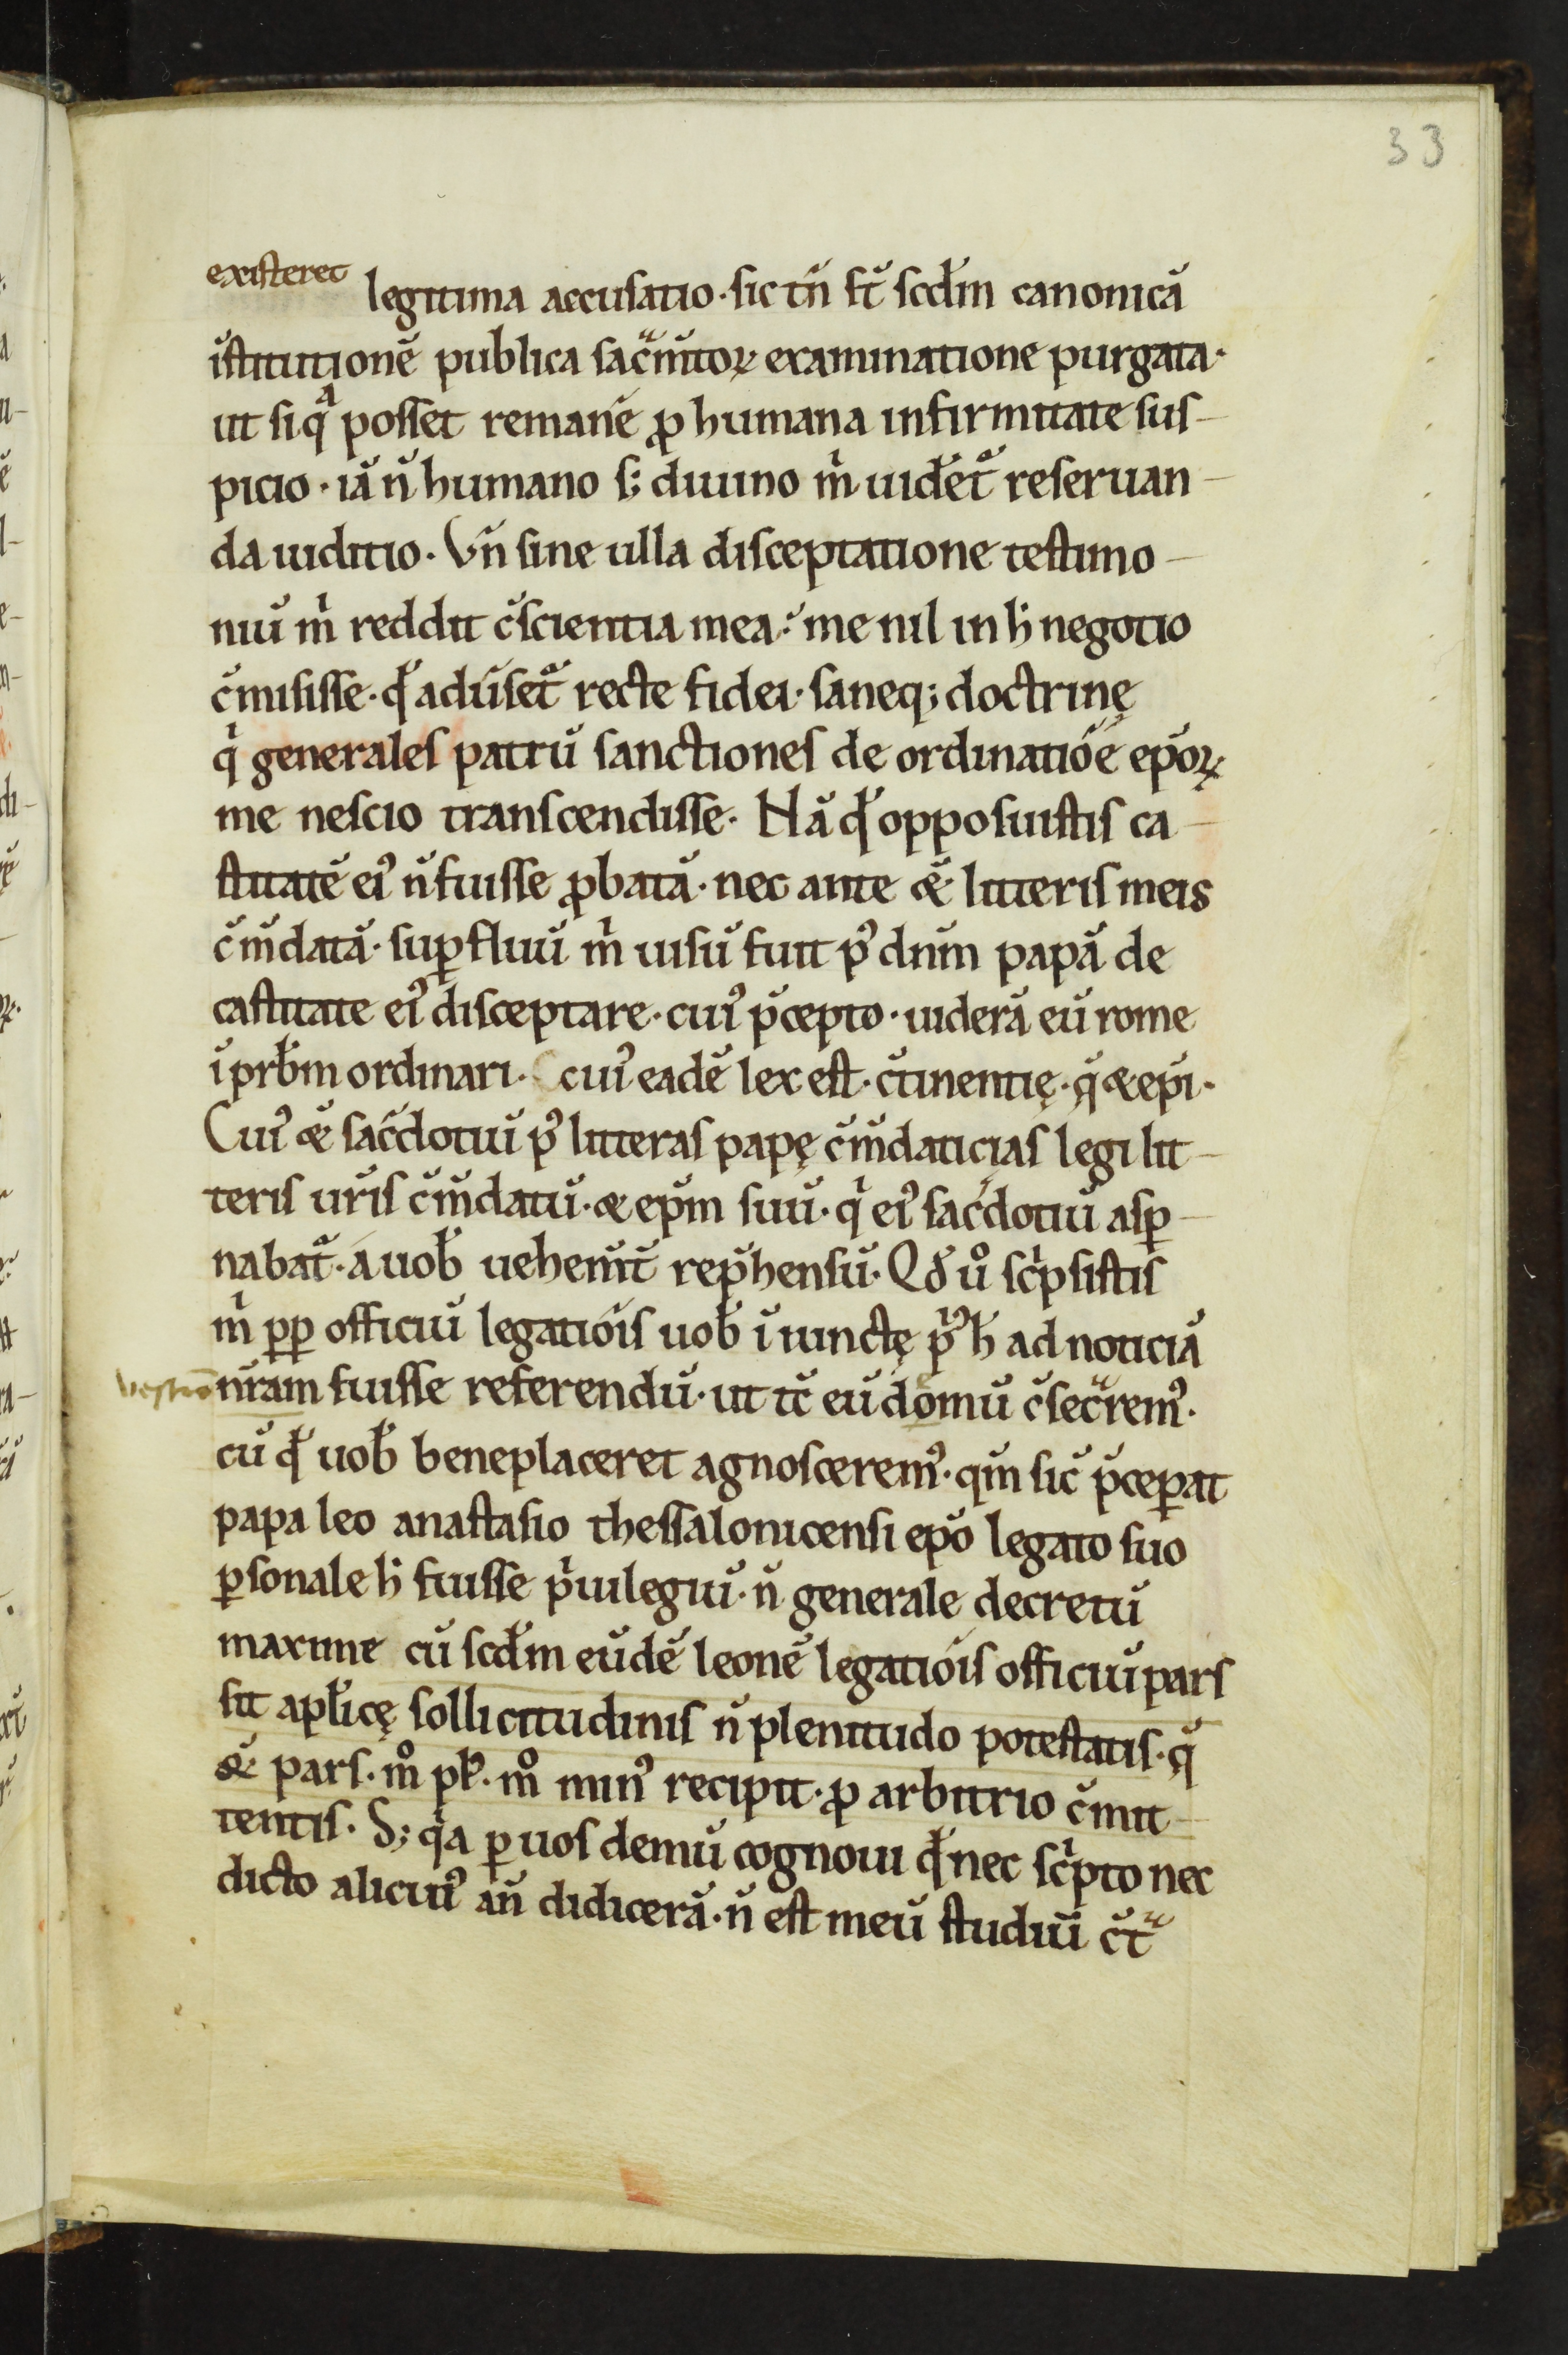 33
existeret legitima accusatio · sic tñ st̃ scd̃m canonicã
ĩstitutionẽ publica sacͣm̃toꝝ examinatione purgata ·
ut si qͣ posset remanẽ ꝓ humana infirmitate sus-
picio · iã ñ humano s; diuino m̃ uidet̃ reseruan-
da iuditio · Vñ sine ulla disceptatione testimo-
niũ m̃ reddit c̃scientia mea · me nil in h̃ negotio
c̃misisse · qđ adũset̃ recte fidei · saneq; doctrinę
qͥ generales patrũ sanctiones de ordinatiõe ep̃oꝝ
me nescio transcendisse · Nã qđ opposuistis ca-
stitatẽ ei᾽ ñ fuisse ꝓbatã · nec ante ẽe litteris meis
c̃m̃datã · suꝑfluũ m̃ uisũ fuit p᾽ dñm papã de
castitate ei᾽ disceptare · cui᾽ p̃cepto · uiderã eũ rome
ĩ prƀm ordinari · cui᾽ eadẽ lex est · c̃tinentię · q̃ & ep̃i ·
Cui᾽ & sac̃dotiũ p᾽ litteras papę c̃m̃daticias legi lit-
teris ur̃is c̃m̃datũ · & ep̃m suũ · qͥ ei᾽ sac̃dotiũ asꝑ-
nabat̃ · a uoƀ uehem̃t̃ rep̃hensũ · Qđ uͦ scͥpsistis
m̃ ꝓꝑ officiũ legatiõis uoƀ ĩiunctę pͥ᾽ h̃ ad noticiã
vestram nr̃am fuisse referendũ · ut tc̃ eũ domũ c̃secͣrem᾽ ·
cũ qđ uoƀ beneplaceret agnoscerem᾽ · qm̃ sic̃ p̃ceꝑat
papa leo anastasio thessalonicensi ep̃o legato suo
ꝑsonale h̃ fuisse pͥuilegiũ · ñ generale decretũ
maxime cũ scd̃m eũdẽ leonẽ legatiõis officiũ pars
sit apl̃icę sollicitudinis ñ plenitudo potestatis · q̃
& pars · mͦ pł · mͦ min᾽ recipit · ꝓ arbitrio c̃mit-
tentis · S; qͥa ꝑ uos demũ cognoui qđ nec scͥpto nec
dicto alicui᾽ añ didicerã · ñ est meũ studiũ c̃tͣ